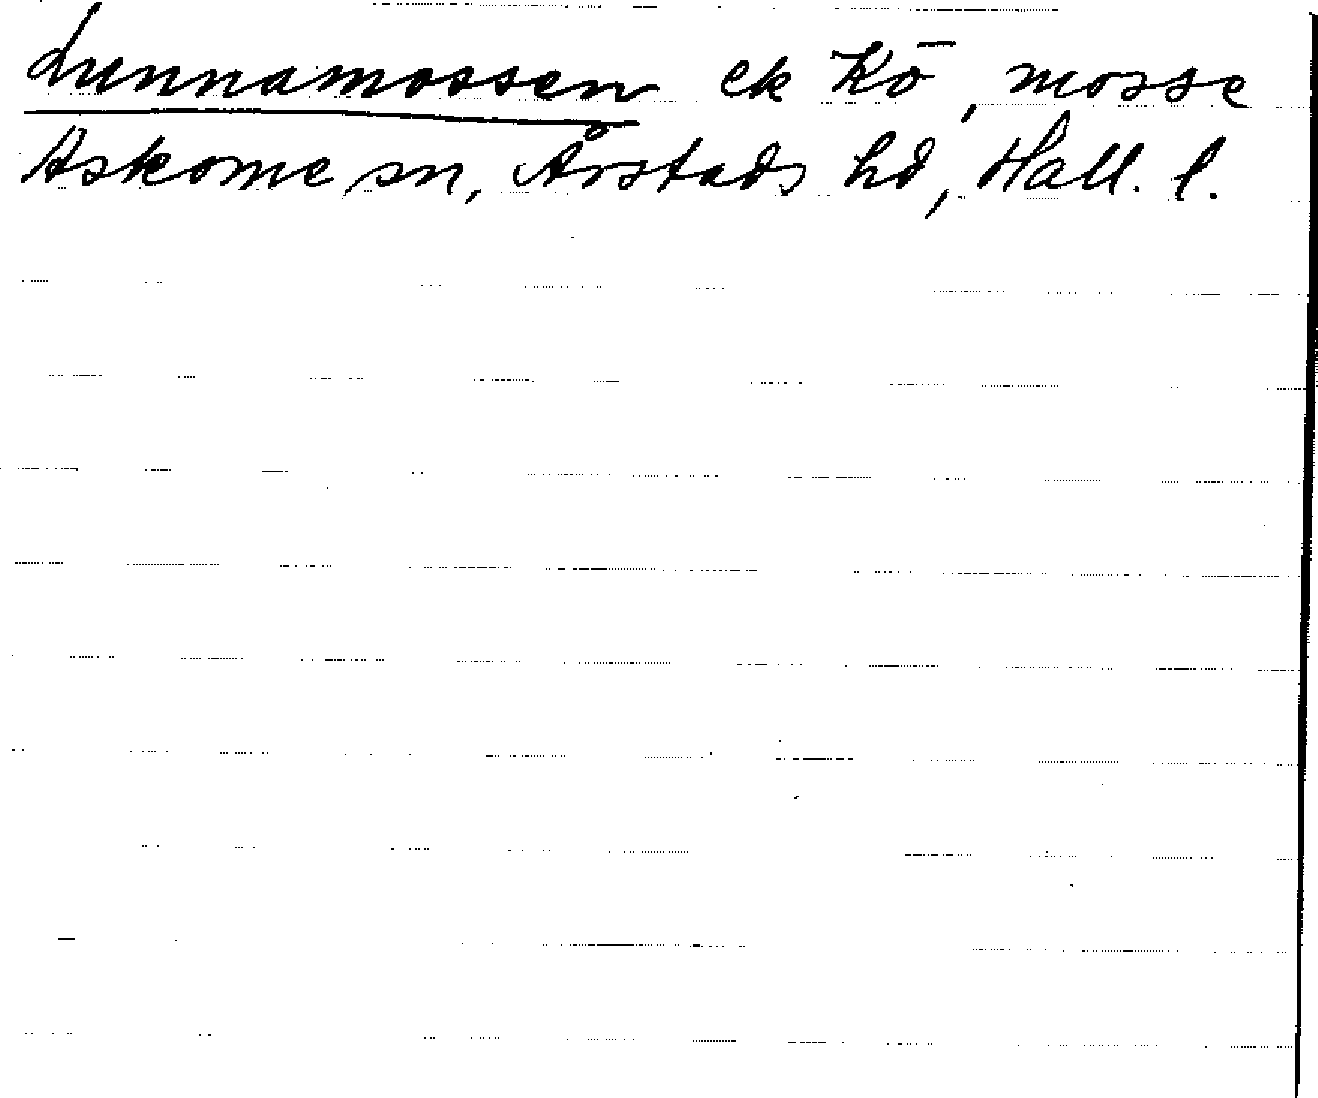 Lunnamossen ek Kō, mosse
Askome sn, Årstads hd, Hall. l.